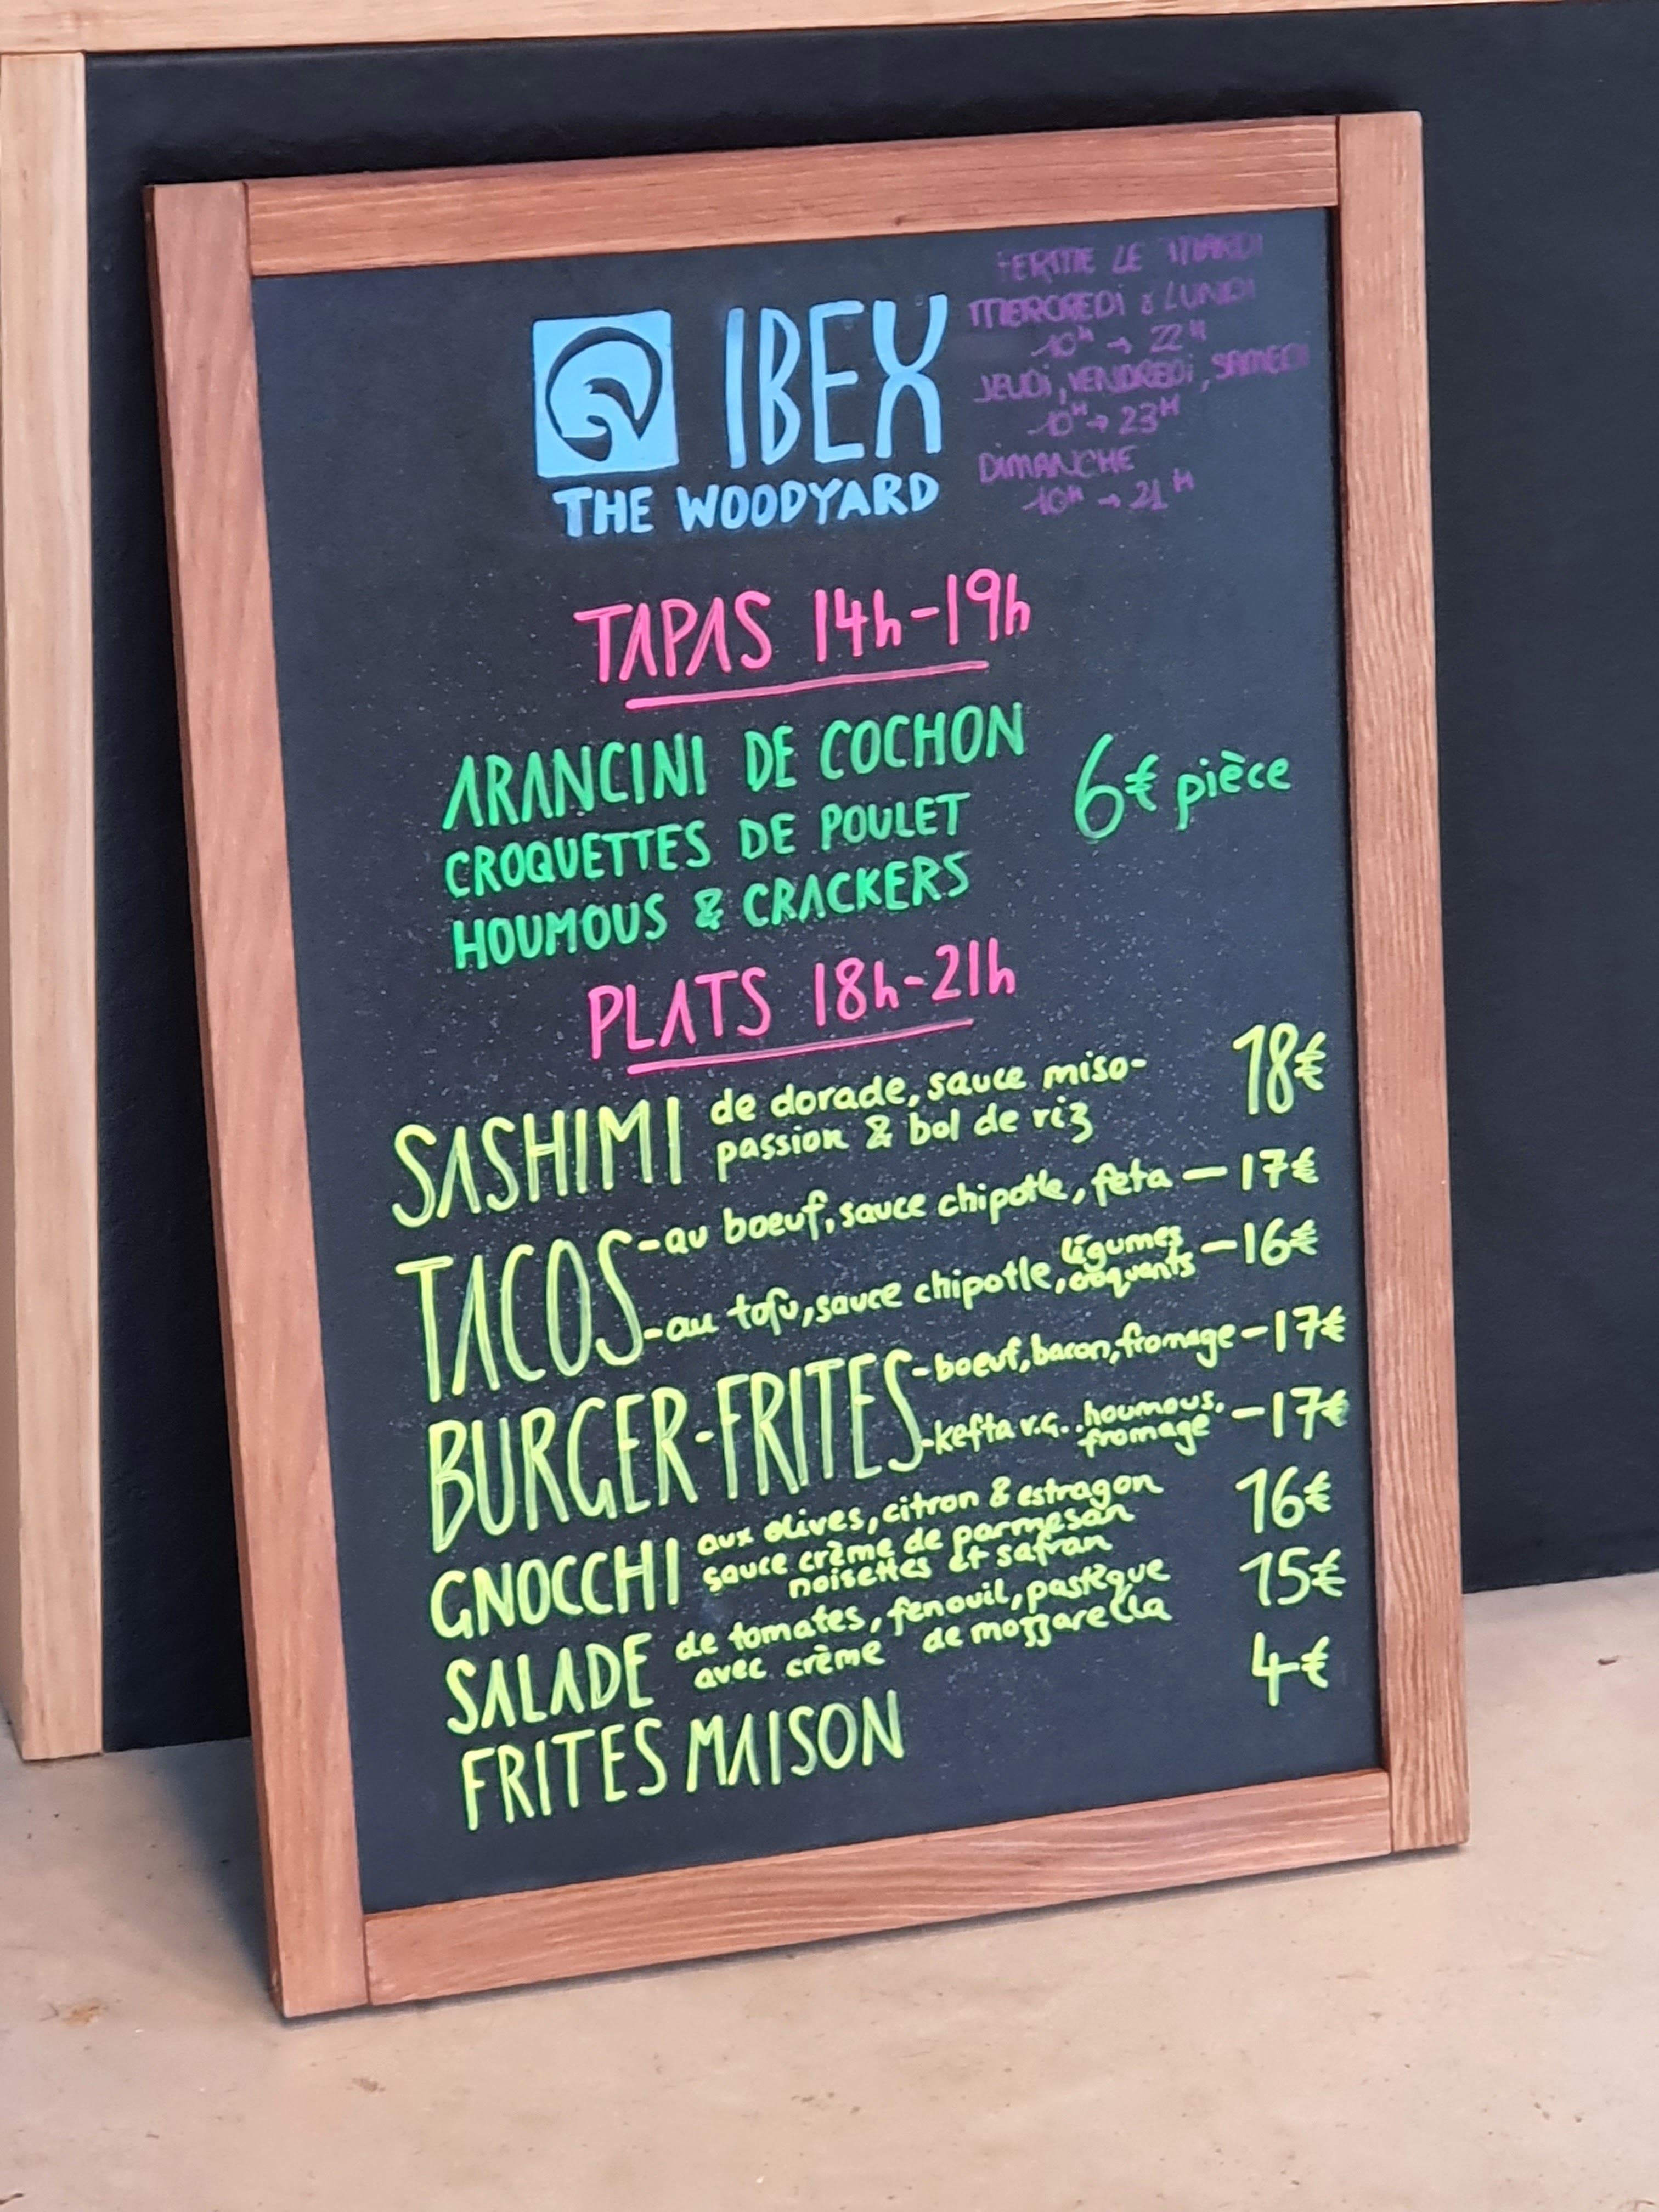 IBEX
THE WOODYARD
FERMÉ LE MARDI
MERCREDI & LUNDI
10H → 22H
JEUDI, VENDREDI, SAMEDI
10H → 23H
DIMANCHE
10H → 21H
TAPAS 14h-19h
ARANCINI DE COCHON
CROQUETTES DE POULET
HOUMOUS & CRACKERS
6€ pièce
PLATS 18h-21h
SASHIMI de dorade, sauce miso-
passion & bol de riz 18€
TACOS -au boeuf, sauce chipotle, feta - 17€
-au tofu, sauce chipotle, légumes croquants - 16€
BURGER-FRITES -boeuf, bacon, fromage - 17€
-kefta v.G., houmous, fromage - 17€
GNOCCHI aux olives, citron & estragon
sauce crème de parmesan
noisettes et safran 16€
SALADE de tomates, fenouil, pastèque
avec crème de mozzarella 15€
FRITES MAISON 4€